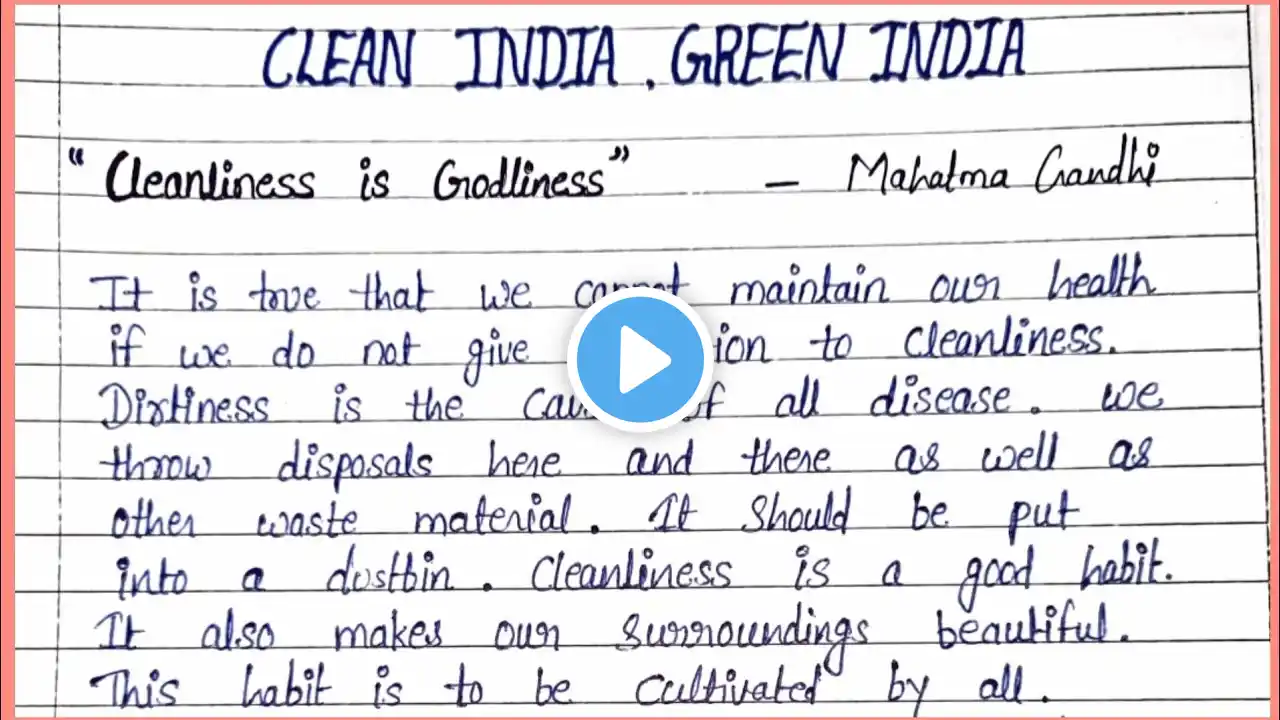 CLEAN INDIA, GREEN INDIA
"Cleanliness is Godliness" - Mahatma Gandhi
It is true that we cannot maintain our health
if we do not give to cleanliness.
Dirtiness is the of all disease. we
throw disposals here and there as well as
other waste material. It should be put
into a dustbin. Cleanliness is a good habit.
It also makes our surroundings beautiful.
This habit is to be cultivated by all.